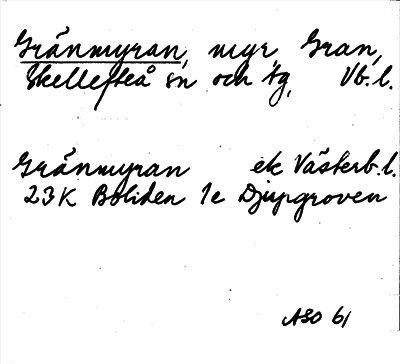 Gränmyran, myr, Gran,
Skellefteå sn och tg, Vb.l.
Gränmyran ek Västerb.l.
23K Boliden 1e Djupgroven
ASO 61